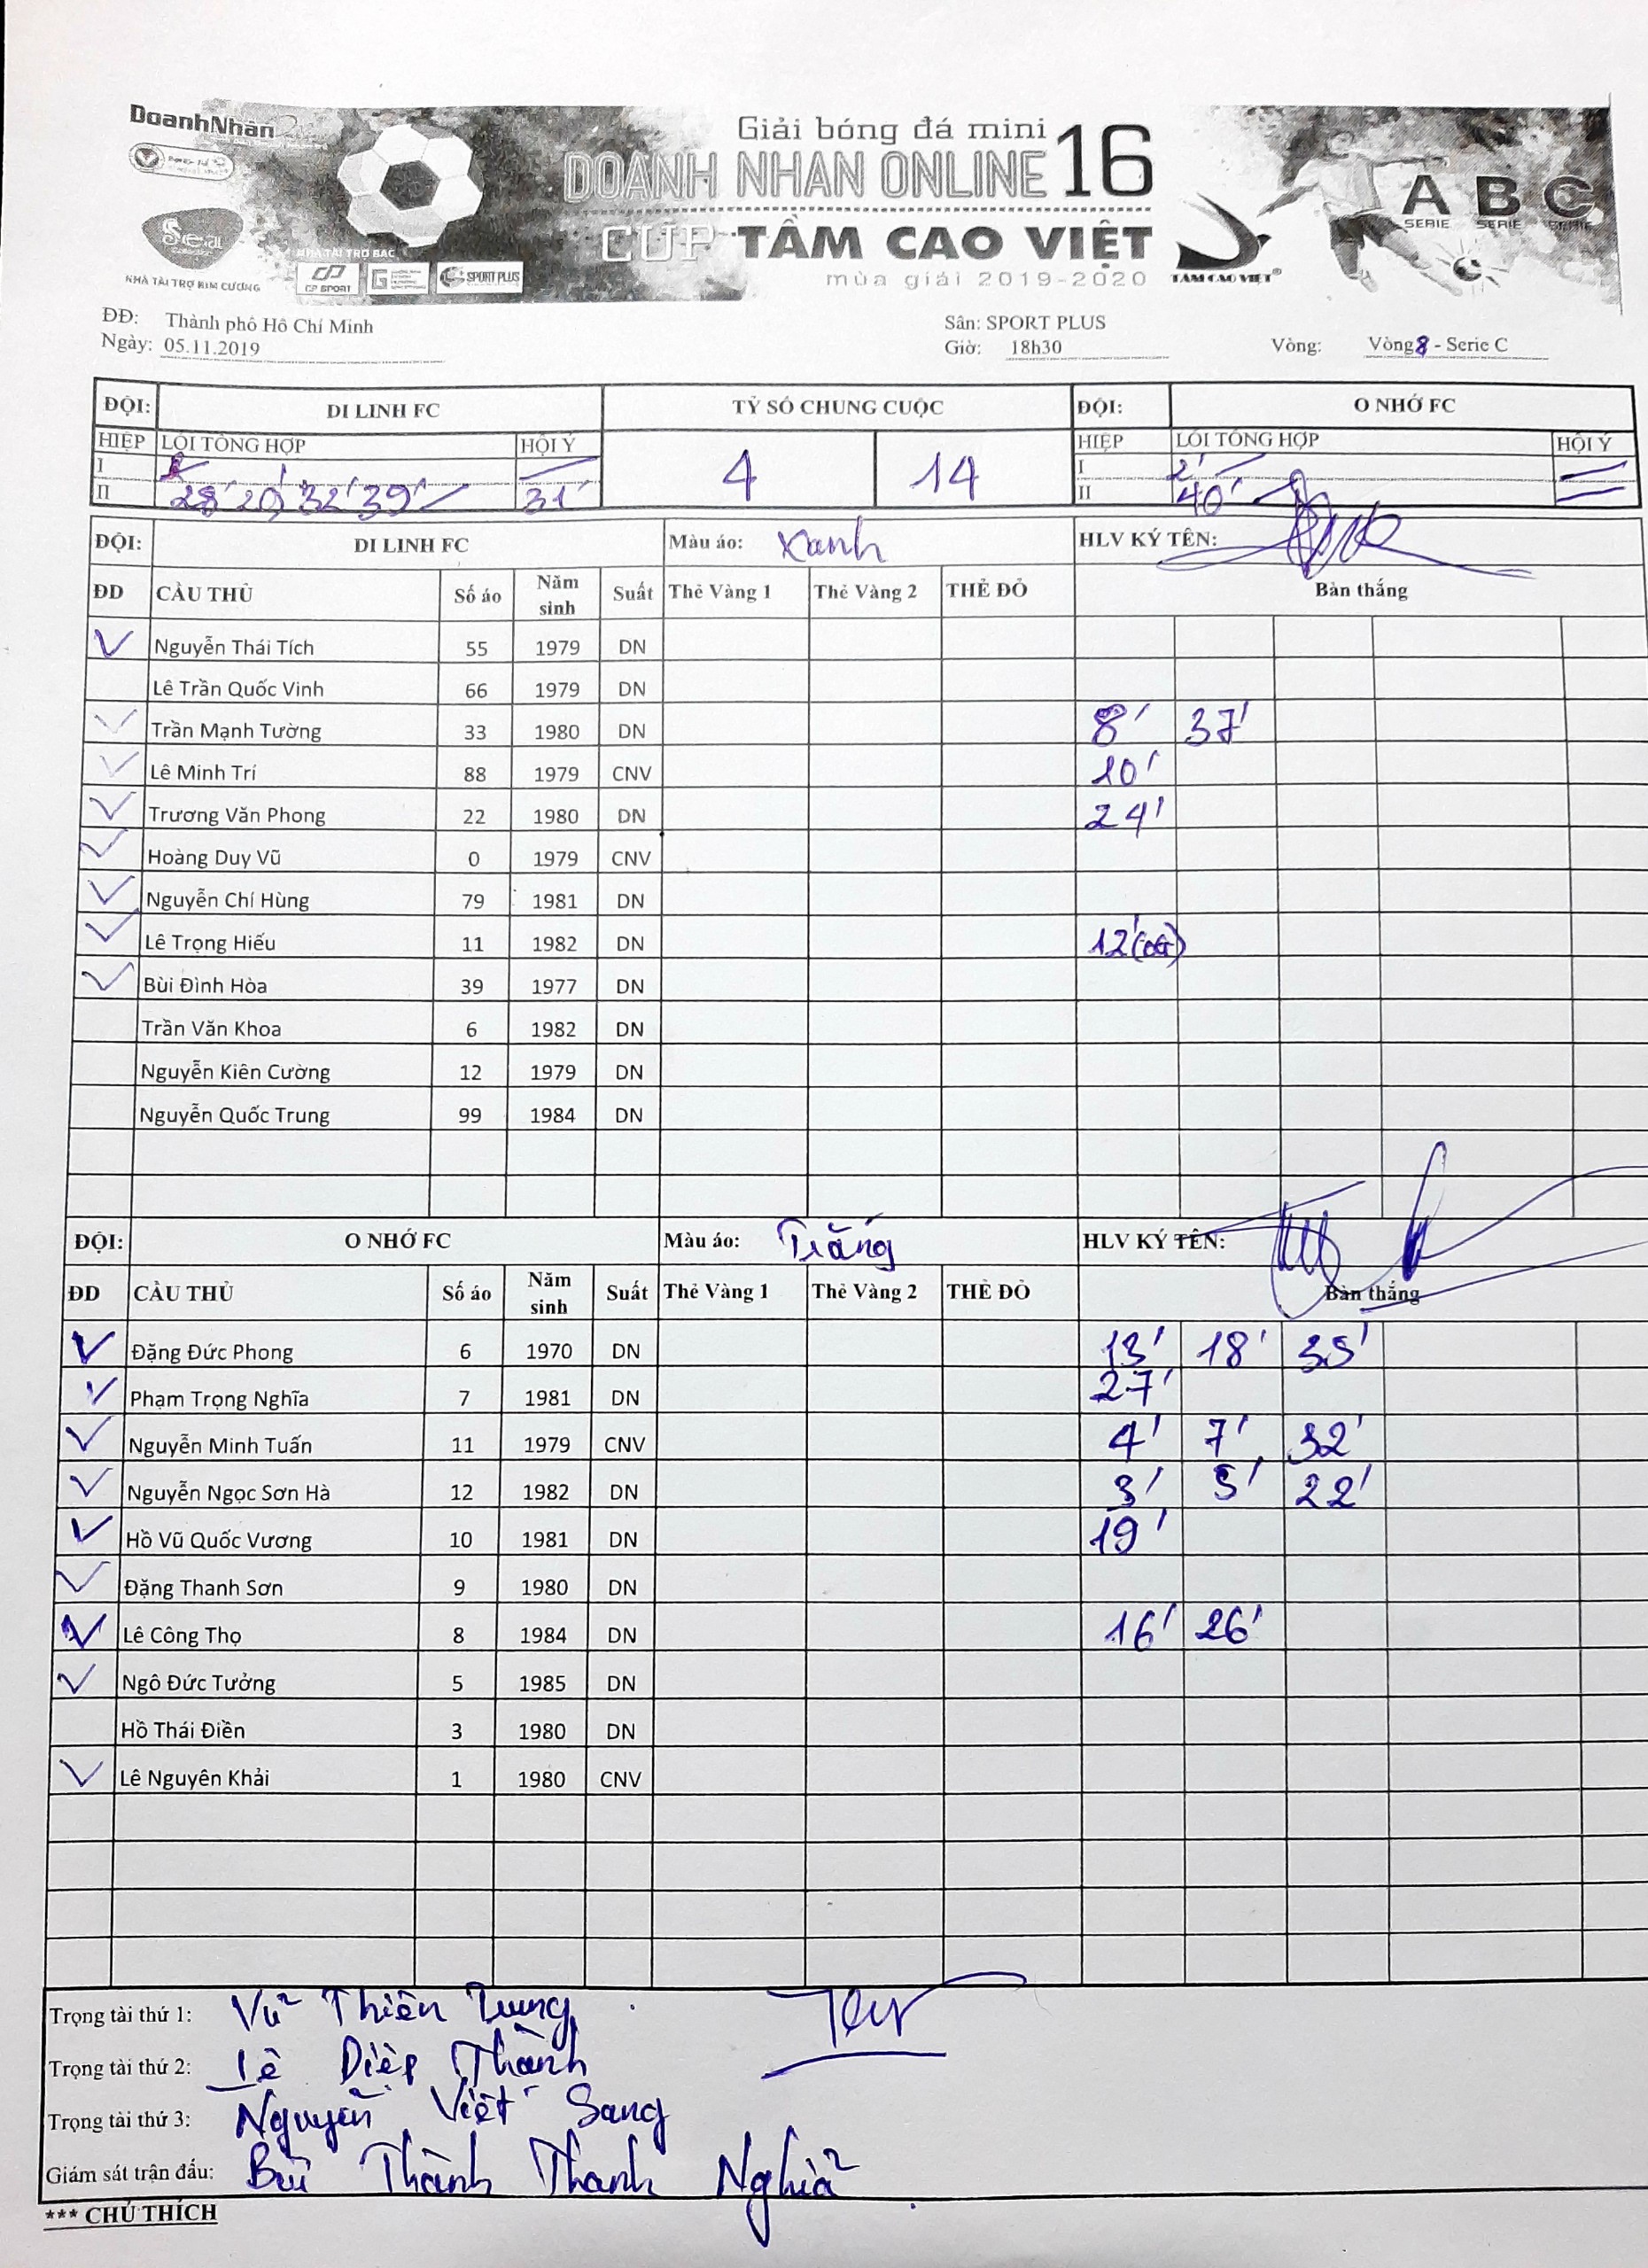 DoanhNhân
Giải bóng đá mini
DOANH NHAN ONLINE 16
CUP TẦM CAO VIỆT
mùa giải 2019-2020
Seal
NHÀ TÀI TRỢ KIM CƯƠNG
NHÀ TÀI TRỢ BẠC
CP SPORT
SPORT PLUS
TÂM CAO VIỆT®
A SERIE B SERIE C SERIE
ĐĐ: Thành phố Hồ Chí Minh Sân: SPORT PLUS
Ngày: 05.11.2019 Giờ: 18h30 Vòng: Vòng 8 - Serie C
ĐỘI: DI LINH FC TỶ SỐ CHUNG CUỘC ĐỘI: O NHỚ FC
HIỆP LỖI TỔNG HỢP HỘI Ý 4 14 HIỆP LỖI TỔNG HỢP HỘI Ý
I I 2'
II 28' 29' 32' 39' 31' II 40'
ĐỘI: DI LINH FC Màu áo: Xanh HLV KÝ TÊN:
ĐD CẦU THỦ Số áo Năm sinh Suất Thẻ Vàng 1 Thẻ Vàng 2 THẺ ĐỎ Bàn thắng
Nguyễn Thái Tích 55 1979 DN
Lê Trần Quốc Vinh 66 1979 DN
Trần Mạnh Tường 33 1980 DN 8' 37'
Lê Minh Trí 88 1979 CNV 10'
Trương Văn Phong 22 1980 DN 24'
Hoàng Duy Vũ 0 1979 CNV
Nguyễn Chí Hùng 79 1981 DN
Lê Trọng Hiếu 11 1982 DN 12' (OG)
Bùi Đình Hòa 39 1977 DN
Trần Văn Khoa 6 1982 DN
Nguyễn Kiên Cường 12 1979 DN
Nguyễn Quốc Trung 99 1984 DN
ĐỘI: O NHỚ FC Màu áo: Trắng HLV KÝ TÊN:
ĐD CẦU THỦ Số áo Năm sinh Suất Thẻ Vàng 1 Thẻ Vàng 2 THẺ ĐỎ Bàn thắng
Đặng Đức Phong 6 1970 DN 13' 18' 35'
Phạm Trọng Nghĩa 7 1981 DN 27'
Nguyễn Minh Tuấn 11 1979 CNV 4' 7' 32'
Nguyễn Ngọc Sơn Hà 12 1982 DN 3' 5' 22'
Hồ Vũ Quốc Vương 10 1981 DN 19'
Đặng Thanh Sơn 9 1980 DN
Lê Công Thọ 8 1984 DN 16' 26'
Ngô Đức Tưởng 5 1985 DN
Hồ Thái Điền 3 1980 DN
Lê Nguyên Khải 1 1980 CNV
Trọng tài thứ 1: Vũ Thiên Trung
Trọng tài thứ 2: Lê Diệp Thành
Trọng tài thứ 3: Nguyễn Việt Sang
Giám sát trận đấu: Bùi Thành Thanh Nghĩa
*** CHÚ THÍCH